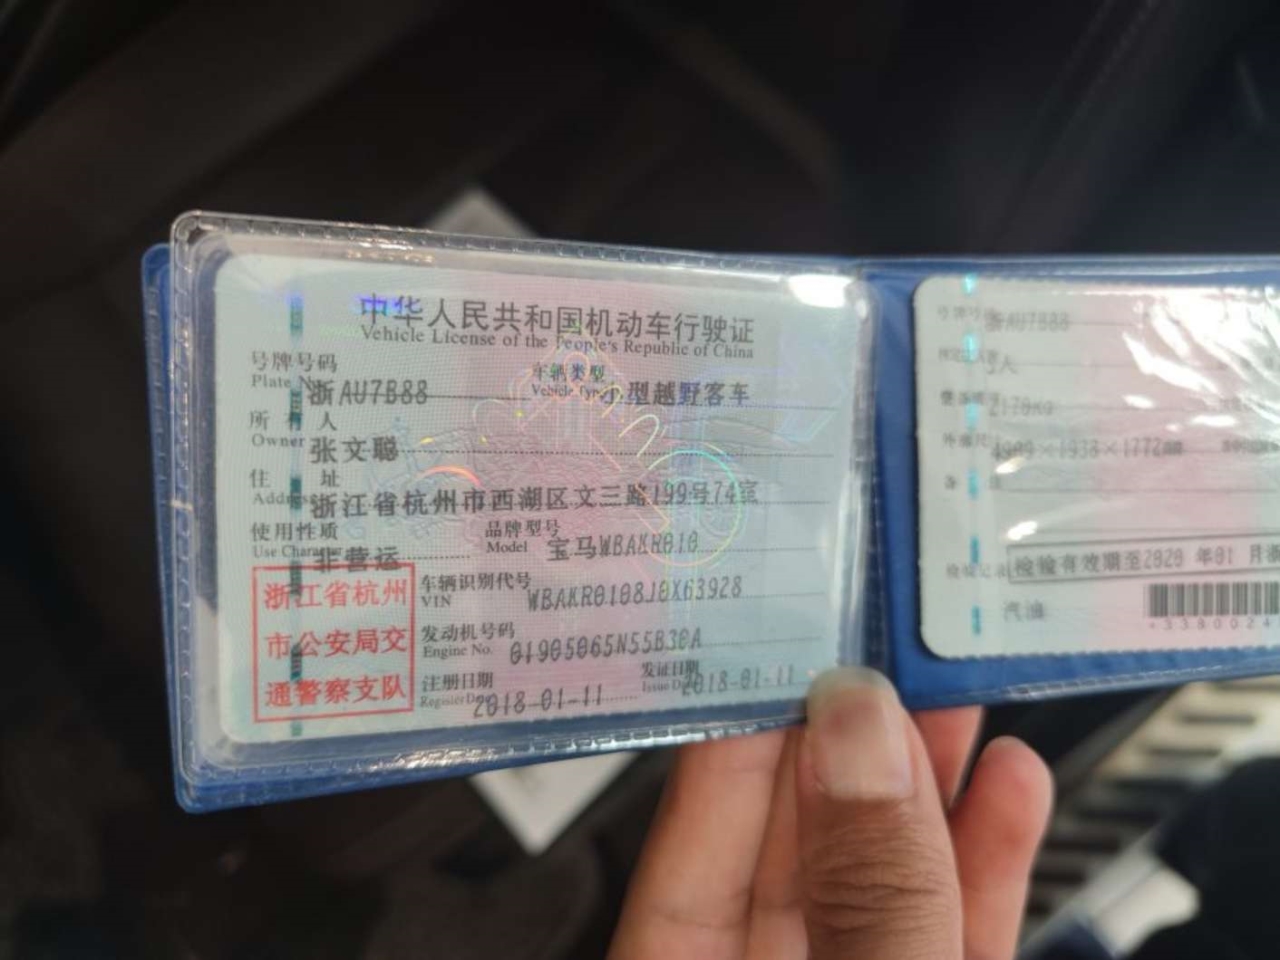 中华人民共和国机动车行驶证
Vehicle License of the People's Republic of China
号牌号码
Plate No. 浙AU7B88
车辆类型
Vehicle Type 小型越野客车
所有人
Owner 张文聪
住址
Address 浙江省杭州市西湖区文三路199号74室
使用性质
Use Character 非营运
品牌型号
Model 宝马WBAKR010
浙江省杭州
市公安局交
通警察支队
车辆识别代号
VIN WBAKR0108J0X63928
发动机号码
Engine No. 01905065N55B30A
注册日期
Register Date 2018-01-11
发证日期
Issue Date 2018-01-11
浙AU7B88
人
2170kg
4909×1938×1772mm
检验有效期至2020 年01 月
汽油